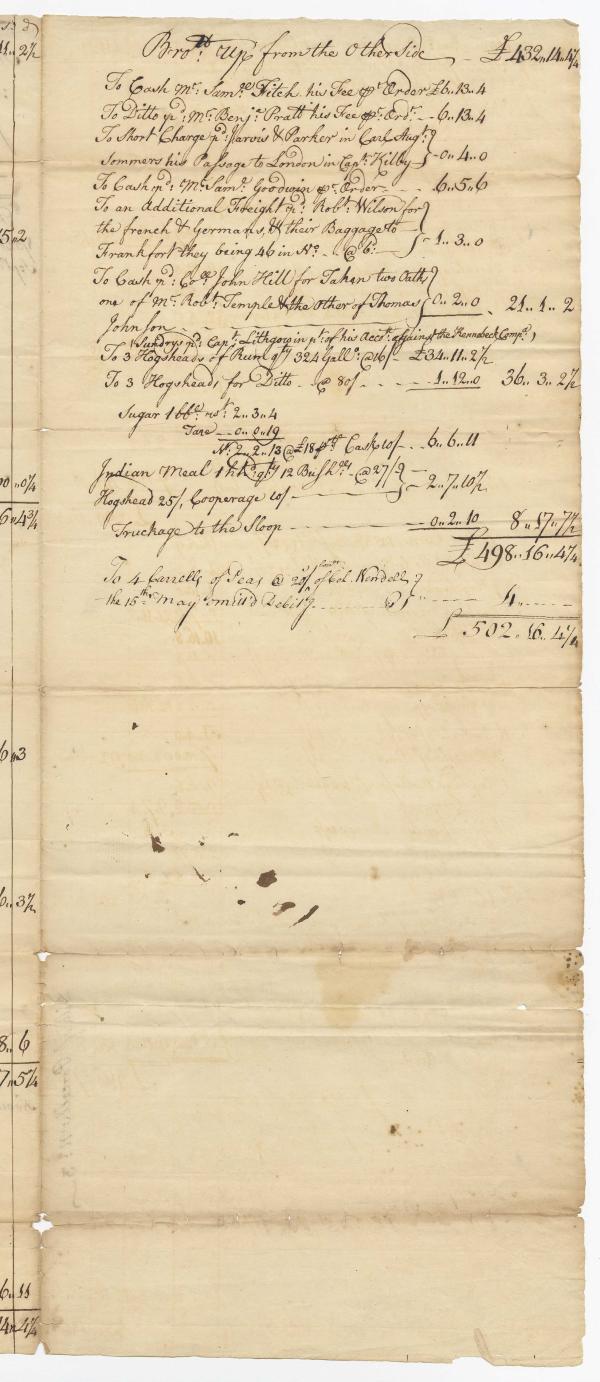 Bro.t Up from the Other Side - £432..14..4¼
To Cash Mr. Sam.l Fitch his Fee pr. Order £6..13..4
To Ditto pd. Mr. Benj.a Pratt his Fee pr. Ord.r - 6..13..4
To Short Charge pd. Jarvis & Parker in Carl Aug.t
Sommers his Passage to London in Cap.t Kilby - 0..4..0
To Cash pd. Mr. Sam.l Goodwin pr. Order - - - 6..5..6
To an Additional Freight pd. Rob.t Wilson for
the french & Germans, & their Baggage to
Frankfort they being 46 in No. - - @ 6d. - 1..3..0
To Cash pd. Co.ll John Hill for Taken two Oaths
one of Mr. Rob.t Temple & the other of Thomas 0..2..0 21..1..2
Johnson
Sundrys pd. Cap.t Lithgow in pt. of his Acct. against the Kennebeck Comp.y
To 3 Hogsheads of Rum q.ty 324 Gall.s @ 16/ - £34..11..2½
To 3 Hogsheads for Ditto - @ 80/ - - - 1..12..0 36..3..2½
Sugar 1 bb.l w.t 2..3..4
Tare - 0..0..19
N.t 2..2..13 @ £18 pr. Cask 10/ - 6..6..11
Indian Meal 1 hhd. q.ty 12 Bush.ls - @ 27/
Hogshead 25/, Cooperage 10/ - - - 2..7..10½
Truckage to the Sloop - - - - 0..2..10 8..17..7½
£498..16..4¼
To 4 barrells of Peas @ 20/ of Col. Wendell
the 15th May omitt'd Debit'g 4..
£502..16..4¼
11..2½
5..2
00..0¼
6..4¾
6..3
0..3½
8..6
7..5¼
6..11
14..4¼